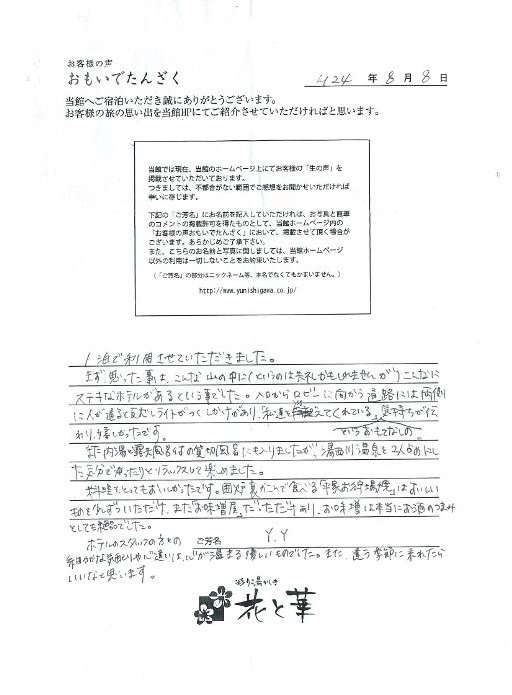 お客様の声
おもいでたんざく
H24 年 8 月 8 日
当館へご宿泊いただき誠にありがとうございます。
お客様の旅の思い出を当館HPにてご紹介させていただければと思います。
当館では現在、当館のホームページ上にてお客様の「生の声」を
掲載させていただいております。
つきましては、不都合がない範囲でご感想をお聞かせいただければ
幸いに存じます。
下記の「ご芳名」にお名前を記入していただければ、お写真と直筆
のコメントの掲載許可を得たものとして、当館ホームページ内の
「お客様の声おもいでたんざく」において、掲載させて頂く場合が
ございます。あらかじめご了承下さい。
また、こちらのお名前と写真に関しましては、当館ホームページ
以外の利用は一切しないことをお約束いたします。
(「ご芳名」の部分はニックネーム等、本名でなくてもかまいません。)
http://www.yunishigawa.co.jp/
1泊で利用させていただきました。
まず、思った事は、こんな山の中に(というのは失礼かもしれませんが)こんなに
ステキなホテルがあるという事でした。入口からロビーに向かう通路には両側
に人が通ると灯だしライトがつくしかけがあり、私達を迎えてくれている
というおもてなしの
気持ちが伝
わり、嬉しかったです。
また内湯と露天風呂は の貸切風呂にも入りましたが、湯西川温泉を2人占めにし
た気分でゆったりとリラックスして楽めました。
料理もとてもおいしかったです。囲炉裏かこんで食べる「平家お狩場焼」はおいしい
ものを少しずついただけ、また「お味噌屋」だけだけあり、お味噌は本当にお酒のつまみ
としても絶品でした。
ホテルのスタッフの方との
ご芳名
Y.Y
細かな気配りや心遣いは、心が温まる優しいものでした。また、違う季節に来れたら
いいなと思います。
彩り湯かしき
花と華